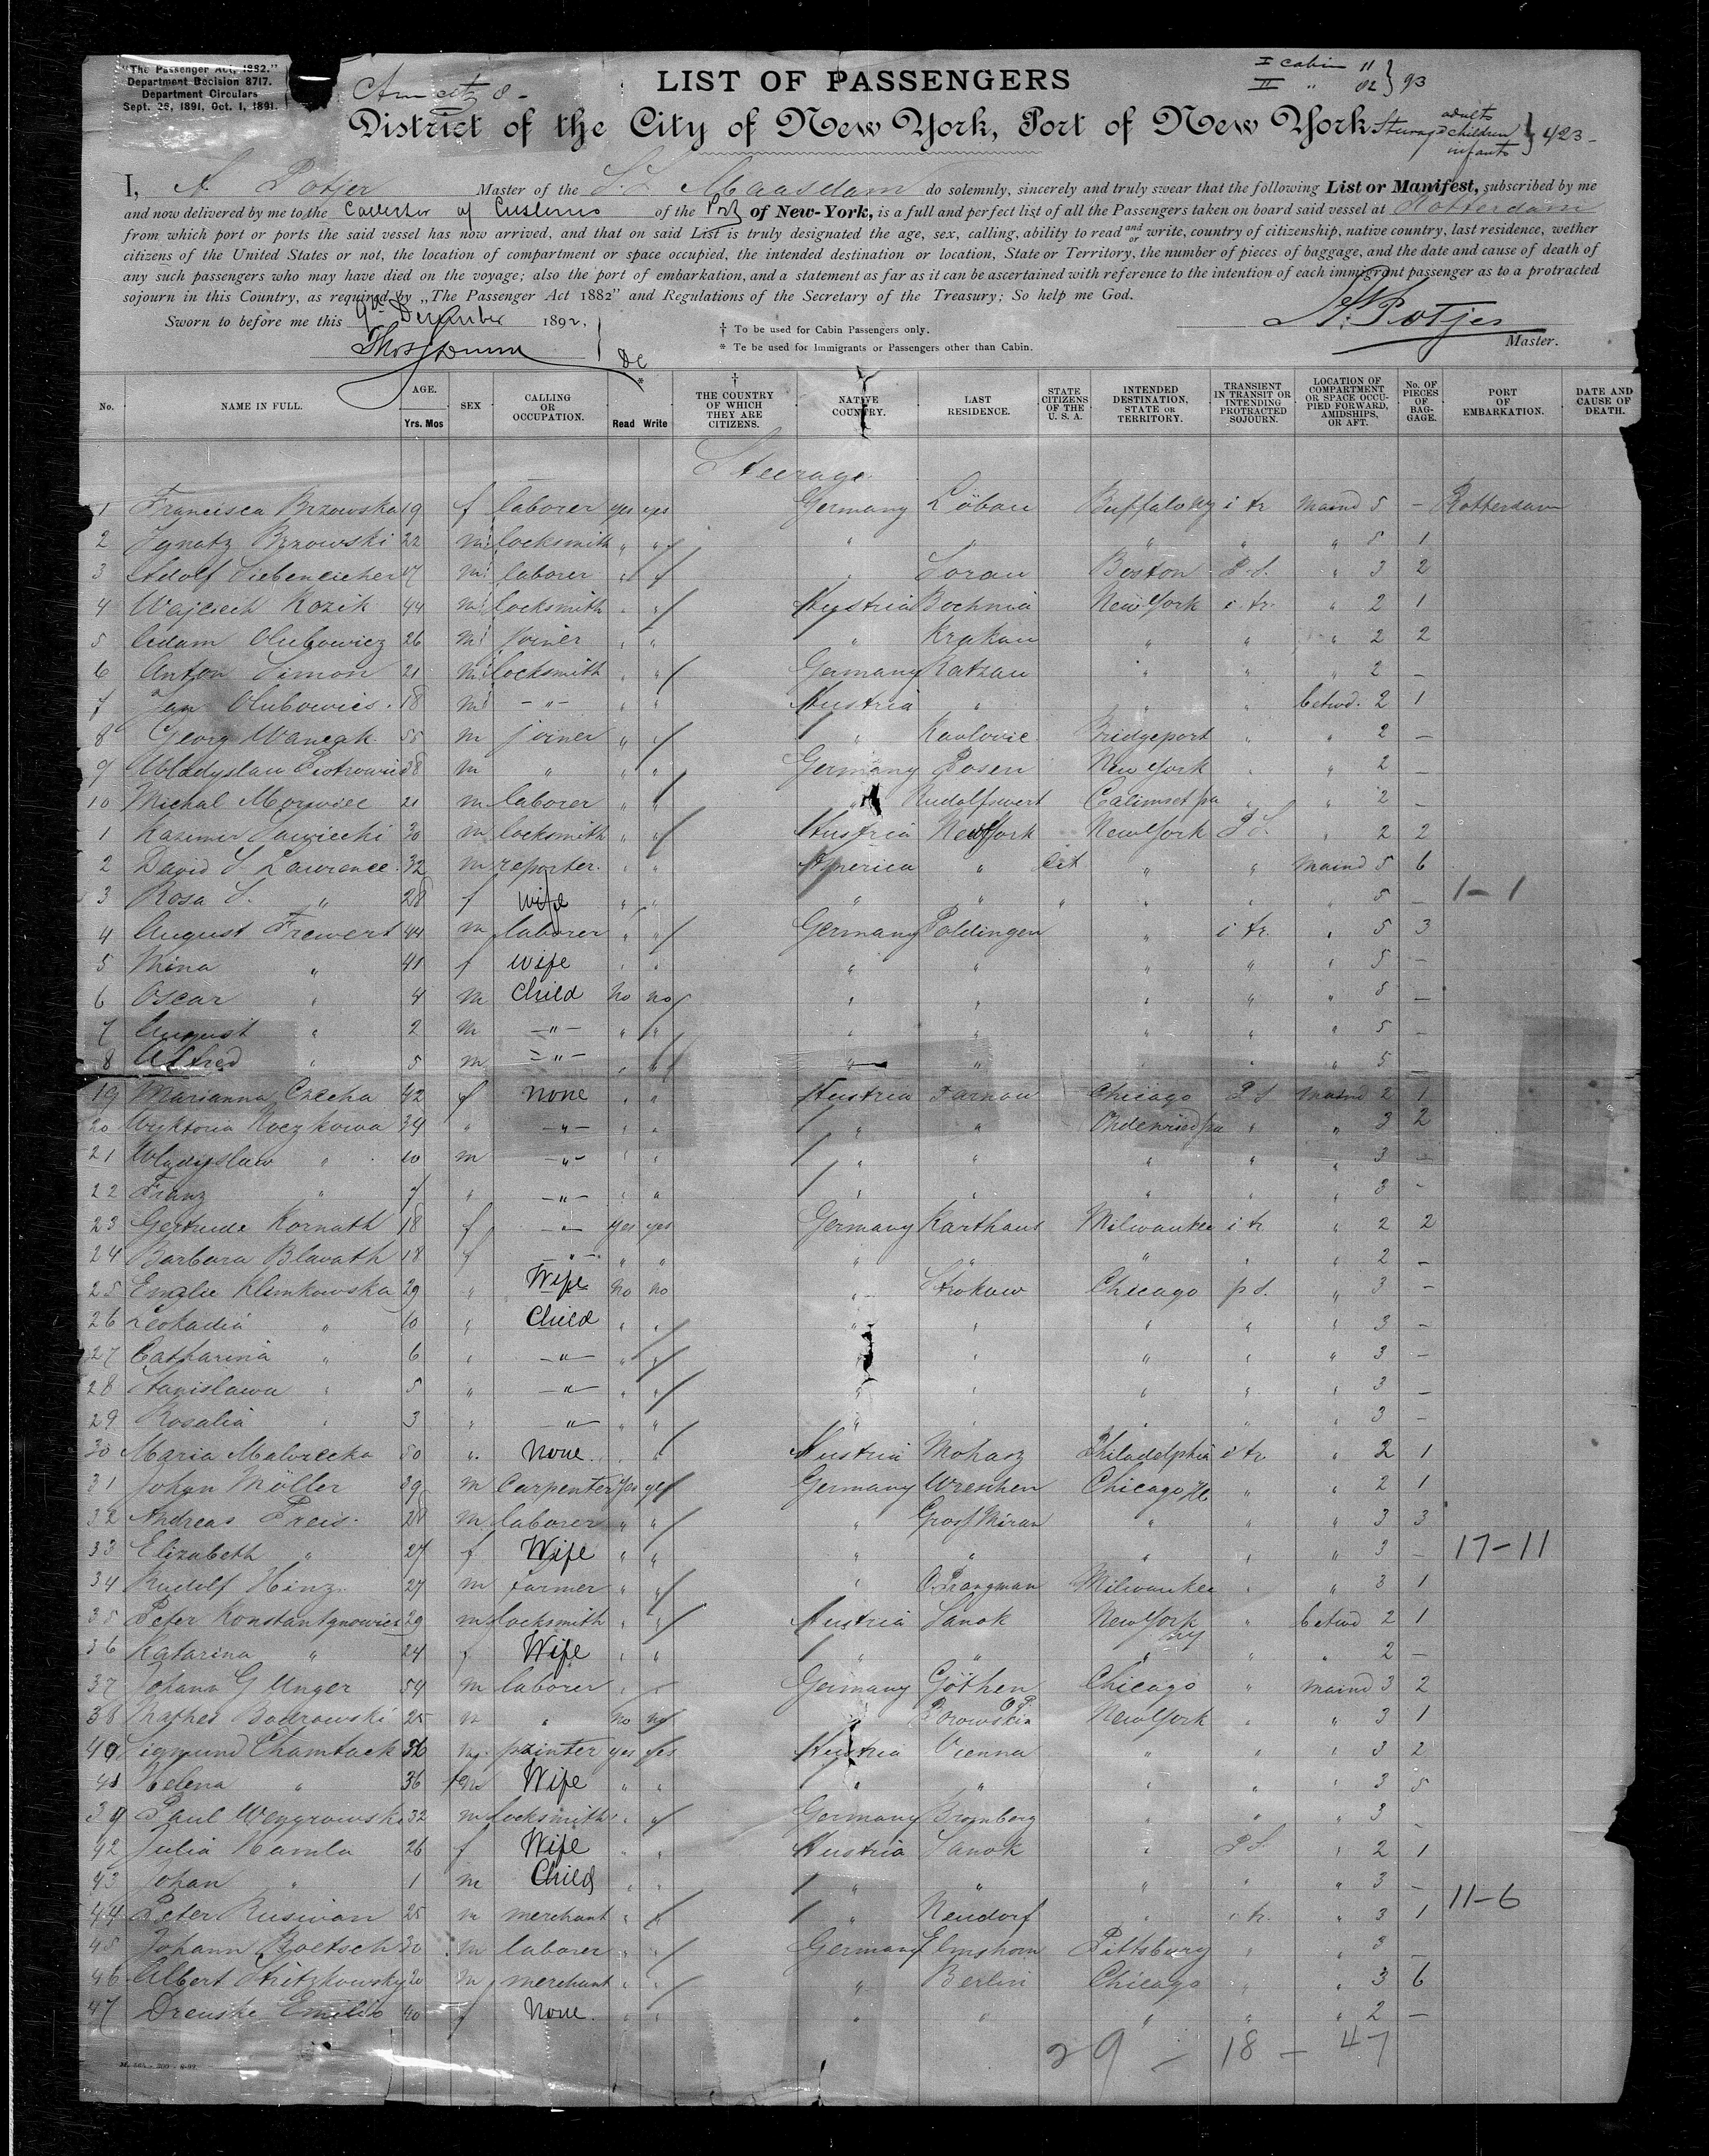 "The Passenger Act, 1882."
Department Decision 8717.
Department Circulars
Sept. 28, 1891, Oct. 1, 1891.
LIST OF PASSENGERS
I cabin 11
II " 82 } 93
District of the City of New York, Port of New York
adults
children
infants } 423 -
I, A. Potjer Master of the S.S. Maasdam do solemnly, sincerely and truly swear that the following List or Manifest, subscribed by me
and now delivered by me to the Collector of Customs of the Port of New-York, is a full and perfect list of all the Passengers taken on board said vessel at Rotterdam
from which port or ports the said vessel has now arrived, and that on said List is truly designated the age, sex, calling, ability to read and/or write, country of citizenship, native country, last residence, wether
citizens of the United States or not, the location of compartment or space occupied, the intended destination or location, State or Territory, the number of pieces of baggage, and the date and cause of death of
any such passengers who may have died on the voyage; also the port of embarkation, and a statement as far as it can be ascertained with reference to the intention of each immigrant passenger as to a protracted
sojourn in this Country, as required by „The Passenger Act 1882" and Regulations of the Secretary of the Treasury; So help me God.
Sworn to before me this 9th December 1892.
† To be used for Cabin Passengers only.
* Te be used for Immigrants or Passengers other than Cabin.
A. Potjer
Master.
No. NAME IN FULL. AGE. Yrs. Mos SEX CALLING OR OCCUPATION. * Read Write † THE COUNTRY OF WHICH THEY ARE CITIZENS. NATIVE COUNTRY. LAST RESIDENCE. STATE CITIZENS OF THE U. S. A. INTENDED DESTINATION, STATE OR TERRITORY. TRANSIENT IN TRANSIT OR INTENDING PROTRACTED SOJOURN. LOCATION OF COMPARTMENT OR SPACE OCCUPIED FORWARD, AMIDSHIPS, OR AFT. No. OF PIECES OF BAGGAGE. PORT OF EMBARKATION. DATE AND CAUSE OF DEATH.
Steerage
1 Francisca Brzowska 19 f laborer yes yes Germany Löbau Buffalo NY i tr maind 5 – Rotterdam
2 Ignatz Brzowski 22 m locksmith " " " " " " " 5 1
3 Adolf Siebeneicher 47 m laborer " " " Sorau Boston P.S. " 3 2
4 Wojciech Kozik 44 m locksmith " " Austria Bochnia New York i. tr. " 2 1
5 Adam Olubowicz 26 m joiner " " " Krakau " " " 2 2
6 Anton Simon 21 m locksmith " " Germany Katzau " " " 2 –
7 Jan Olubowics 18 m – " – " " Austria " " " betwd. 2 1
8 Georg Wanegk 55 m joiner " " " Bridgeport " " 2 –
9 Wladyslau 38 m " " " Germany Posen New York " " 2 –
10 Michal 21 m laborer " " " Rudolfswert " " 2 –
1 Kasimer 30 m locksmith " " Austria New York New York P S. " 2 2
2 David S. Lawrence 32 m reporter " " America " Cit " " maind 5 6
3 Rosa S. " 28 f wife " " " " " " " " 5 – 1 – 1
4 August Frewert 44 m laborer " " Germany Poldingen " i tr. " 5 3
5 Mina " 41 f wife " " " " " " " 5 –
6 Oscar " 4 m Child no no " " " " " 5 –
7 August " 2 m – " – " " " " " " " 5 –
8 Alfred " 5 m – " – " " " " " " " 5 –
19 Marianna Czecha 42 f none " " Austria Tarnow Chicago P S maind 2 1
20 Wiktoria Koczkowa 34 " – " – " " " " " " 3 2
21 Wladyslaw " 10 m – " – " " " " " " " 3 –
22 Franz " 7 " – " – " " " " " " " 3 –
23 Gertrude Kornath 18 f – " – yes yes Germany Karthaus Milwaukee i tr " 2 2
24 Barbara Blavath 18 f – " – " " " " " " " 2 –
25 Emilie Klimkowska 29 " Wife no no " Strokow Chicago p S. " 3 –
26 Leokadia " 10 " Child " " " " " " " 3 –
27 Catharina " 6 " – " – " " " " " " " 3 –
28 Stanislawa " 5 " – " – " " " " " " " 3 –
29 Rosalia " 3 " – " – " " " " " " " 3 –
30 Maria Malorecka 50 " None " " Austria Mohasz Philadelphia i tr " 2 1
31 Johan Möller 39 m Carpenter yes yes Germany Wreschen Chicago Ill " " 2 1
32 Andreas Preis 28 m laborer " " " " " " 3 3
33 Elizabeth " 27 f Wife " " " " " " " 3 – 17 – 11
34 Rudolf Hinz 27 m farmer " " " Milwaukee " " 3 1
35 Peter Konstantynowics 29 m locksmith " " Austria Sanok New York NY " betwd 2 1
36 Katarina " 24 f Wife " " " " " " " 2 –
37 Johana G Unger 54 m laborer " " Germany Göthen Chicago " maind 3 2
38 Mathes Bodrowski 25 m " no no " New York " " 3 1
40 Sigmund Chamtack 36 m. painter yes yes Austria Vienna " " " 3 2
41 Helena " 36 Wife " " " " " " " 3 5
39 Paul Wengrowski 32 m locksmith " " Germany Bromberg " " " 3 –
42 Julia Hamla 26 f Wife " " Austria Sanok " P S " 2 1
43 Johan " 1 m Child " " " " " " " 3 –
44 Peter Rusivan 25 m merchant " " " Neudorf " i tr. " 3 1 11 – 6
45 Johann Boetsch 30 m laborer " " Germany Elmshorn Pittsburg " " 3 –
46 Albert Stritzkowsky 20 m merchant " " " Berlin Chicago " " 3 6
47 Drenske Emilie 40 f None " " " " " " " 2 –
29 – 18 – 47